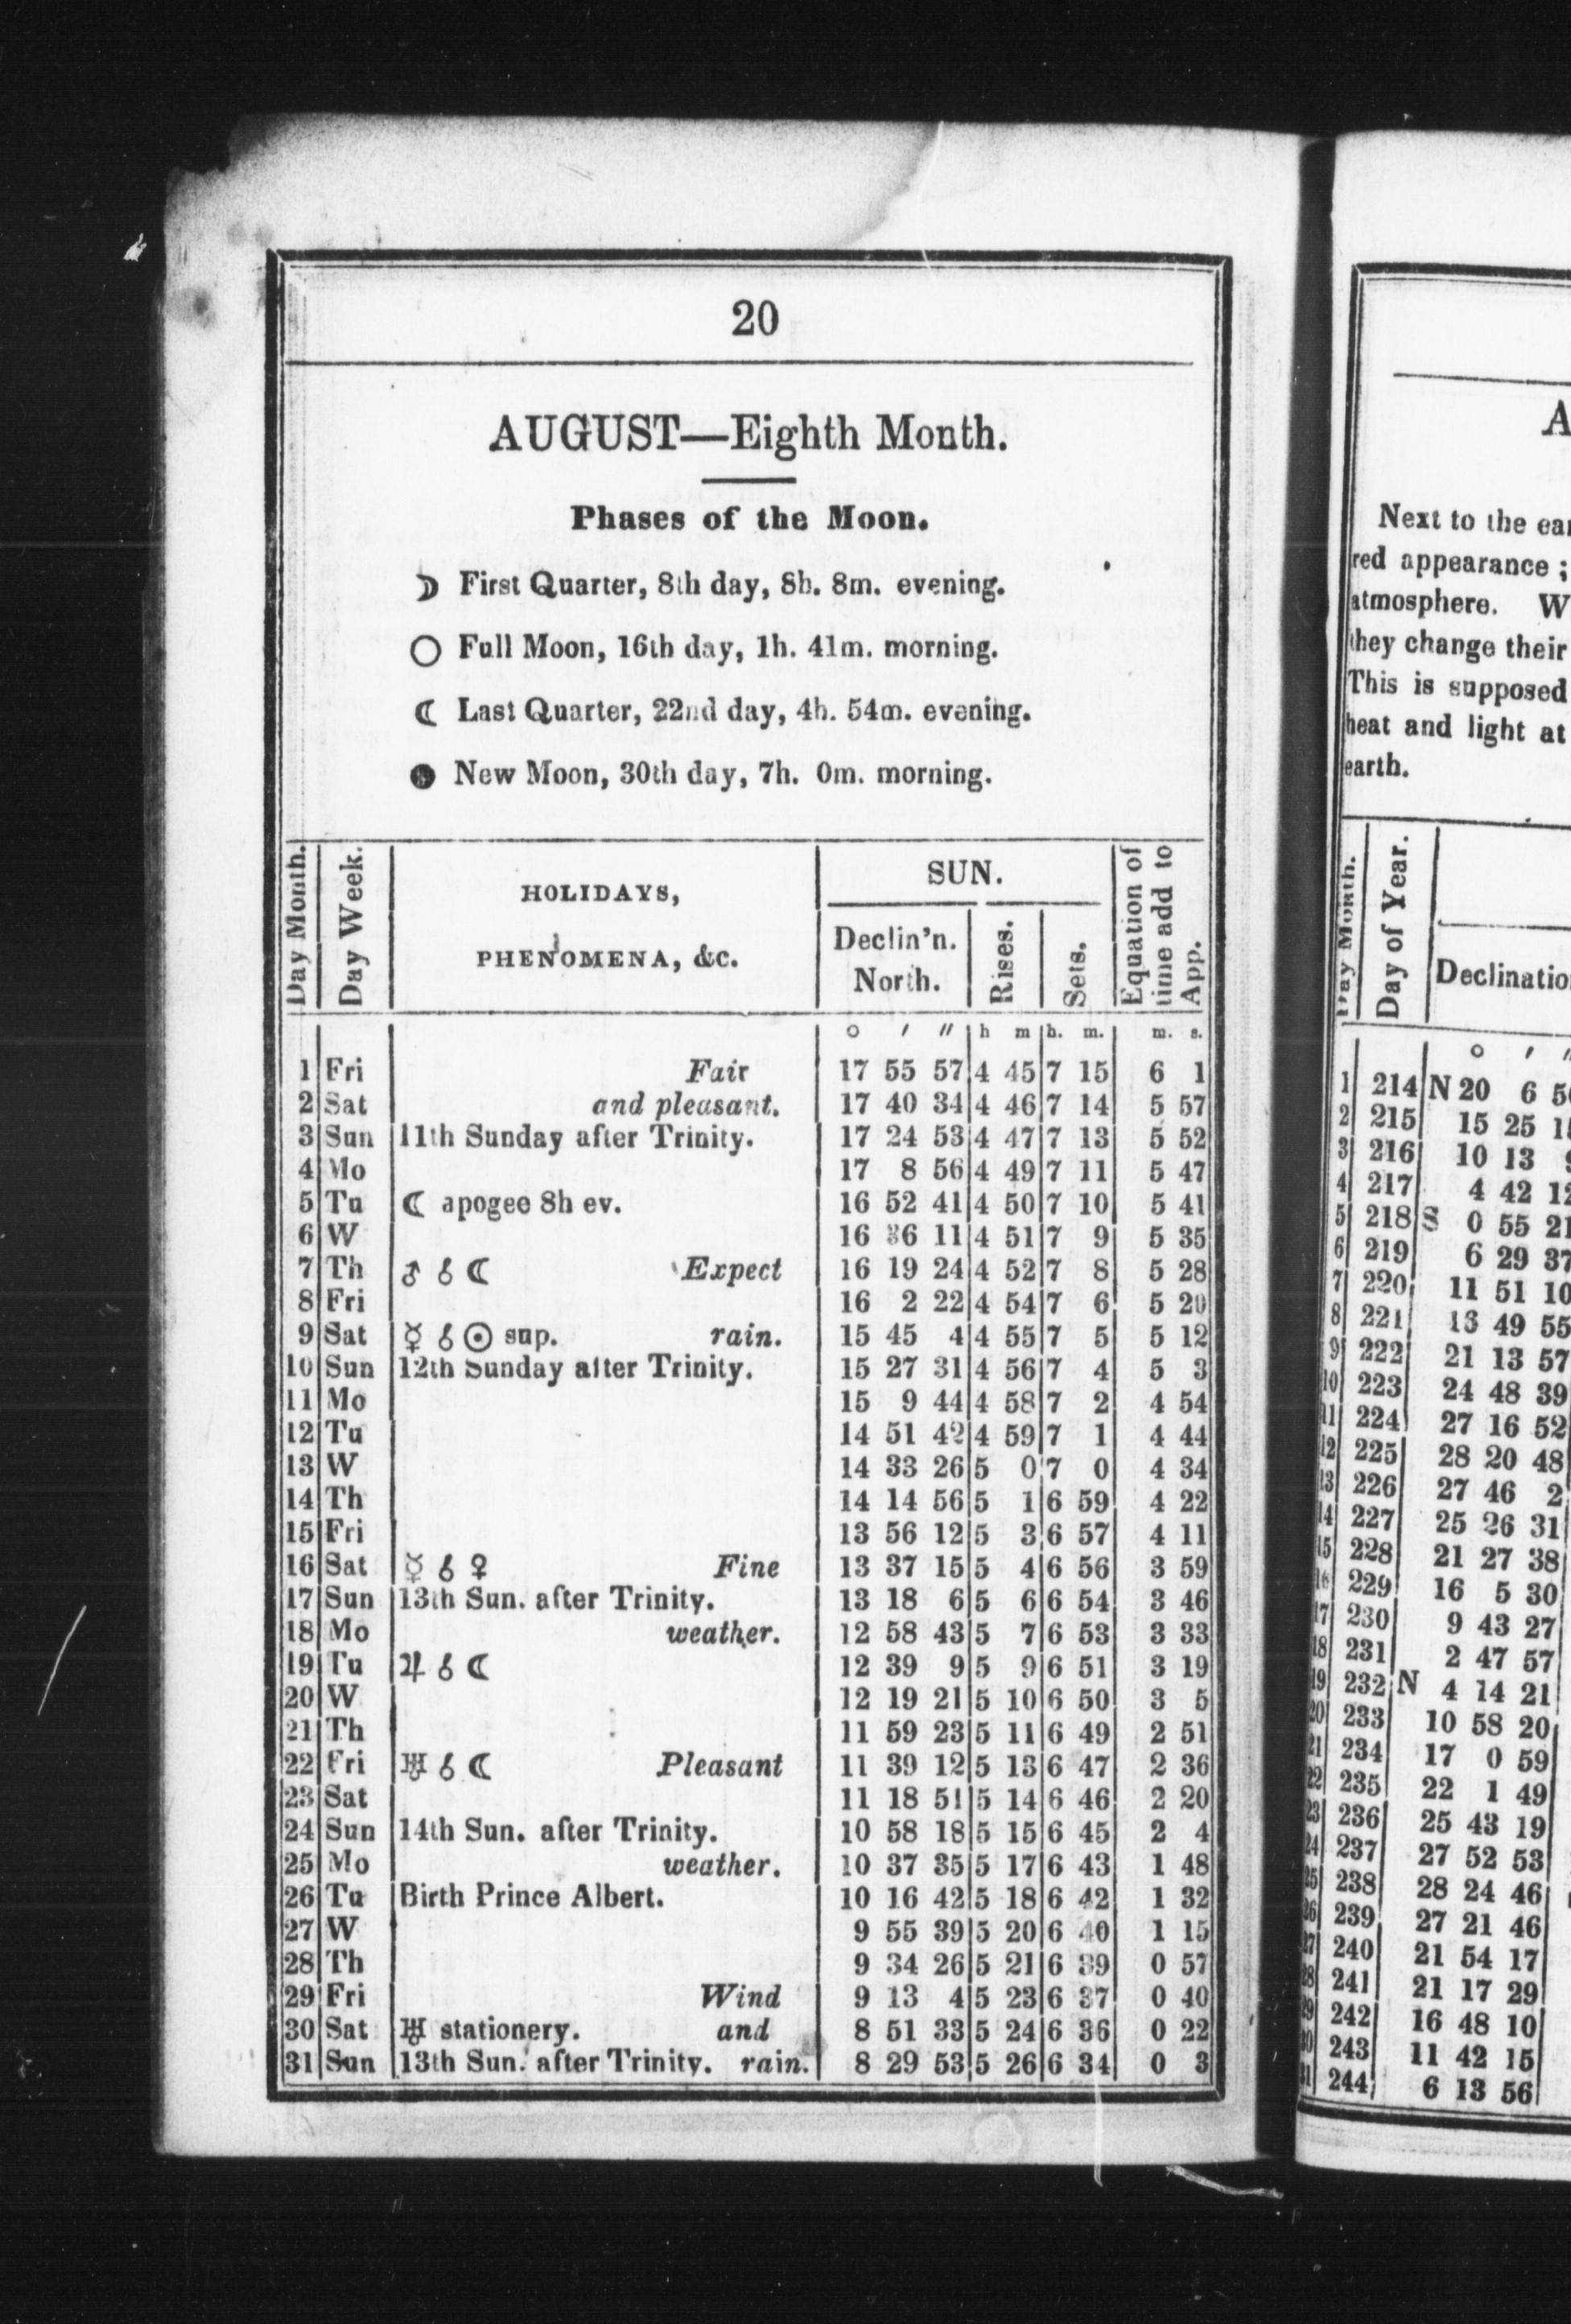 20
AUGUST—Eighth Month.
Phases of the Moon.
☽ First Quarter, 8th day, 8h. 8m. evening.
○ Full Moon, 16th day, 1h. 41m. morning.
☾ Last Quarter, 22nd day, 4h. 54m. evening.
● New Moon, 30th day, 7h. 0m. morning.
Day Month.
Day Week.
HOLIDAYS,
PHENOMENA, &C.
SUN.
Declin'n.
North.
Rises.
Sets.
Equation of
time add to
App.
o ′ ″ h m h. m. m. s.
1 Fri Fair 17 55 57 4 45 7 15 6 1
2 Sat and pleasant. 17 40 34 4 46 7 14 5 57
3 Sun 11th Sunday after Trinity. 17 24 53 4 47 7 13 5 52
4 Mo 17 8 56 4 49 7 11 5 47
5 Tu ☾ apogee 8h ev. 16 52 41 4 50 7 10 5 41
6 W 16 36 11 4 51 7 9 5 35
7 Th ♂ ☌ ☾ Expect 16 19 24 4 52 7 8 5 28
8 Fri 16 2 22 4 54 7 6 5 20
9 Sat ☿ ☌ ☉ sup. rain. 15 45 4 4 55 7 5 5 12
10 Sun 12th Sunday after Trinity. 15 27 31 4 56 7 4 5 3
11 Mo 15 9 44 4 58 7 2 4 54
12 Tu 14 51 42 4 59 7 1 4 44
13 W 14 33 26 5 0 7 0 4 34
14 Th 14 14 56 5 1 6 59 4 22
15 Fri 13 56 12 5 3 6 57 4 11
16 Sat ☿ ☌ ♀ Fine 13 37 15 5 4 6 56 3 59
17 Sun 13th Sun. after Trinity. 13 18 6 5 6 6 54 3 46
18 Mo weather. 12 58 43 5 7 6 53 3 33
19 Tu ♃ ☌ ☾ 12 39 9 5 9 6 51 3 19
20 W 12 19 21 5 10 6 50 3 5
21 Th 11 59 23 5 11 6 49 2 51
22 Fri ♅ ☌ ☾ Pleasant 11 39 12 5 13 6 47 2 36
23 Sat 11 18 51 5 14 6 46 2 20
24 Sun 14th Sun. after Trinity. 10 58 18 5 15 6 45 2 4
25 Mo weather. 10 37 35 5 17 6 43 1 48
26 Tu Birth Prince Albert. 10 16 42 5 18 6 42 1 32
27 W 9 55 39 5 20 6 40 1 15
28 Th 9 34 26 5 21 6 39 0 57
29 Fri Wind 9 13 4 5 23 6 37 0 40
30 Sat ♅ stationery. and 8 51 33 5 24 6 36 0 22
31 Sun 13th Sun. after Trinity. rain. 8 29 53 5 26 6 34 0 3
A
Next to the
red appearance ;
atmosphere. W
they change their
This is supposed
heat and light at
earth.
Day Month.
Day of Year.
o ′ ″
1 214 N 20 6
2 215 15 25
3 216 10 13
4 217 4 42 12
5 218 S 0 55 21
6 219 6 29 37
7 220 11 51 10
8 221 13 49 55
9 222 21 13 57
10 223 24 48 39
11 224 27 16 52
12 225 28 20 48
13 226 27 46 2
14 227 25 26 31
15 228 21 27 38
16 229 16 5 30
17 230 9 43 27
18 231 2 47 57
19 232 N 4 14 21
20 233 10 58 20
21 234 17 0 59
22 235 22 1 49
23 236 25 43 19
24 237 27 52 53
25 238 28 24 46
26 239 27 21 46
27 240 21 54 17
28 241 21 17 29
29 242 16 48 10
30 243 11 42 15
31 244 6 13 56